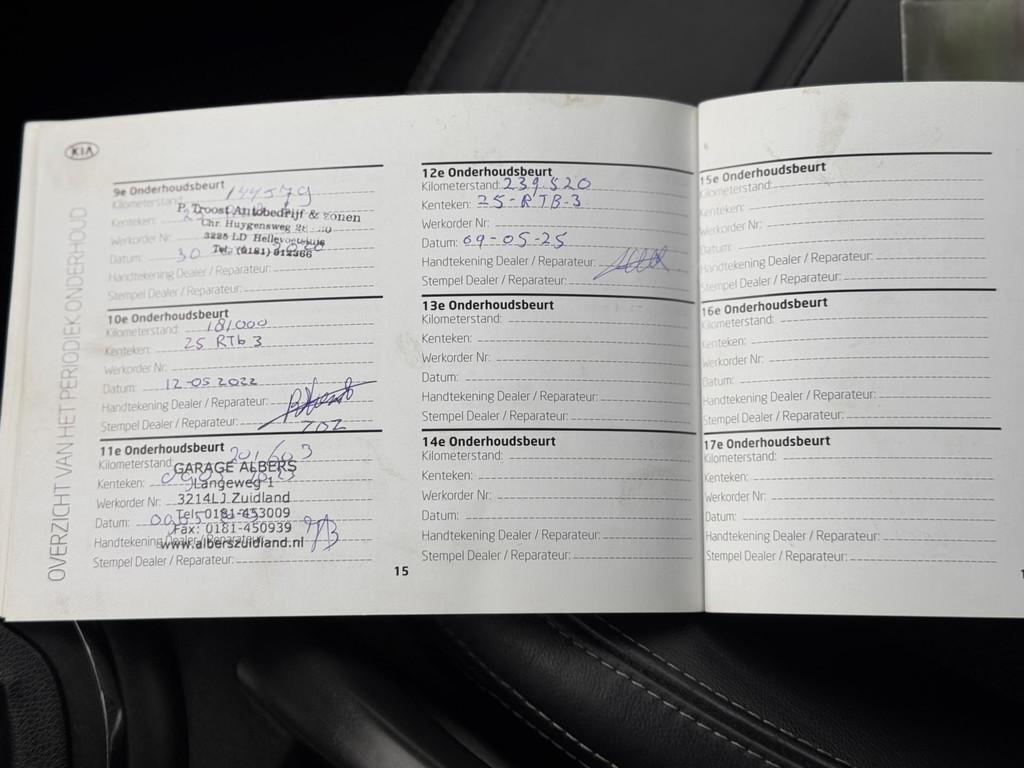 KIA
OVERZICHT VAN HET PERIODIEK ONDERHOUD
9e Onderhoudsbeurt
Kilometerstand: 144579
P. Troost Autobedrijf & zonen
Kenteken:
Chr. Huygensweg
Werkorder Nr:
3225 LD Hellevoetsluis
Datum: 30
Tel: (0181) 312366
Handtekening Dealer / Reparateur:
Stempel Dealer / Reparateur:
10e Onderhoudsbeurt
Kilometerstand: 181000
Kenteken: 25 RTb 3
Werkorder Nr:
Datum: 12-05 2022
Handtekening Dealer / Reparateur:
Stempel Dealer / Reparateur:
11e Onderhoudsbeurt
Kilometerstand: 201603
GARAGE ALBERS
Kenteken:
Langeweg 1
Werkorder Nr:
3214LJ Zuidland
Datum:
Tel: 0181-453009
Fax: 0181-450939
Handtekening Dealer / Reparateur:
www.alberszuidland.nl
Stempel Dealer / Reparateur:
15
12e Onderhoudsbeurt
Kilometerstand: 239.520
Kenteken: 25-RTB-3
Werkorder Nr:
Datum: 09-05-25
Handtekening Dealer / Reparateur:
Stempel Dealer / Reparateur:
13e Onderhoudsbeurt
Kilometerstand:
Kenteken:
Werkorder Nr:
Datum:
Handtekening Dealer / Reparateur:
Stempel Dealer / Reparateur:
14e Onderhoudsbeurt
Kilometerstand:
Kenteken:
Werkorder Nr:
Datum:
Handtekening Dealer / Reparateur:
Stempel Dealer / Reparateur:
15e Onderhoudsbeurt
Kilometerstand:
Kenteken:
Werkorder Nr:
Datum:
Handtekening Dealer / Reparateur:
Stempel Dealer / Reparateur:
16e Onderhoudsbeurt
Kilometerstand:
Kenteken:
Werkorder Nr:
Datum:
Handtekening Dealer / Reparateur:
Stempel Dealer / Reparateur:
17e Onderhoudsbeurt
Kilometerstand:
Kenteken:
Werkorder Nr:
Datum:
Handtekening Dealer / Reparateur:
Stempel Dealer / Reparateur: